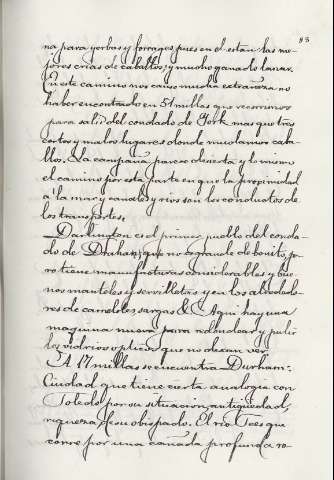 85
na para yerbas y forrages pues en el estan las me-
jores crias de caballos, y mucho ganado lanar.
En este camino nos causo mucha estrañeza no
haber encontrado en 51 millas que recorrimos
para salir del condado de York mas que tres
cortos y malos lugares donde mudamos caba-
llos. La campaña parece desierta y lo mismo
el camino por esta parte en que la proximidad
a la mar y canales y rios son los conductos de
los transportes.
Darlington es el primer pueblo del conda-
do de Durham, que no es grande si bonito, pe-
ro tiene manufacturas considerables y bue-
nos manteles y servilletas y en los alrrededo-
res de camelotes, sargas &. Aqui hay una
maquina nueva para redondear y pulir
los vidrios opticos que no dexan ver.
A 17 millas se encuentra Durham:
Ciudad que tiene cierta analogia con
Toledo por su situacion, antigüedad,
riqueza de su obispado. El rio Tees que
corre por una cañada profunda ro-